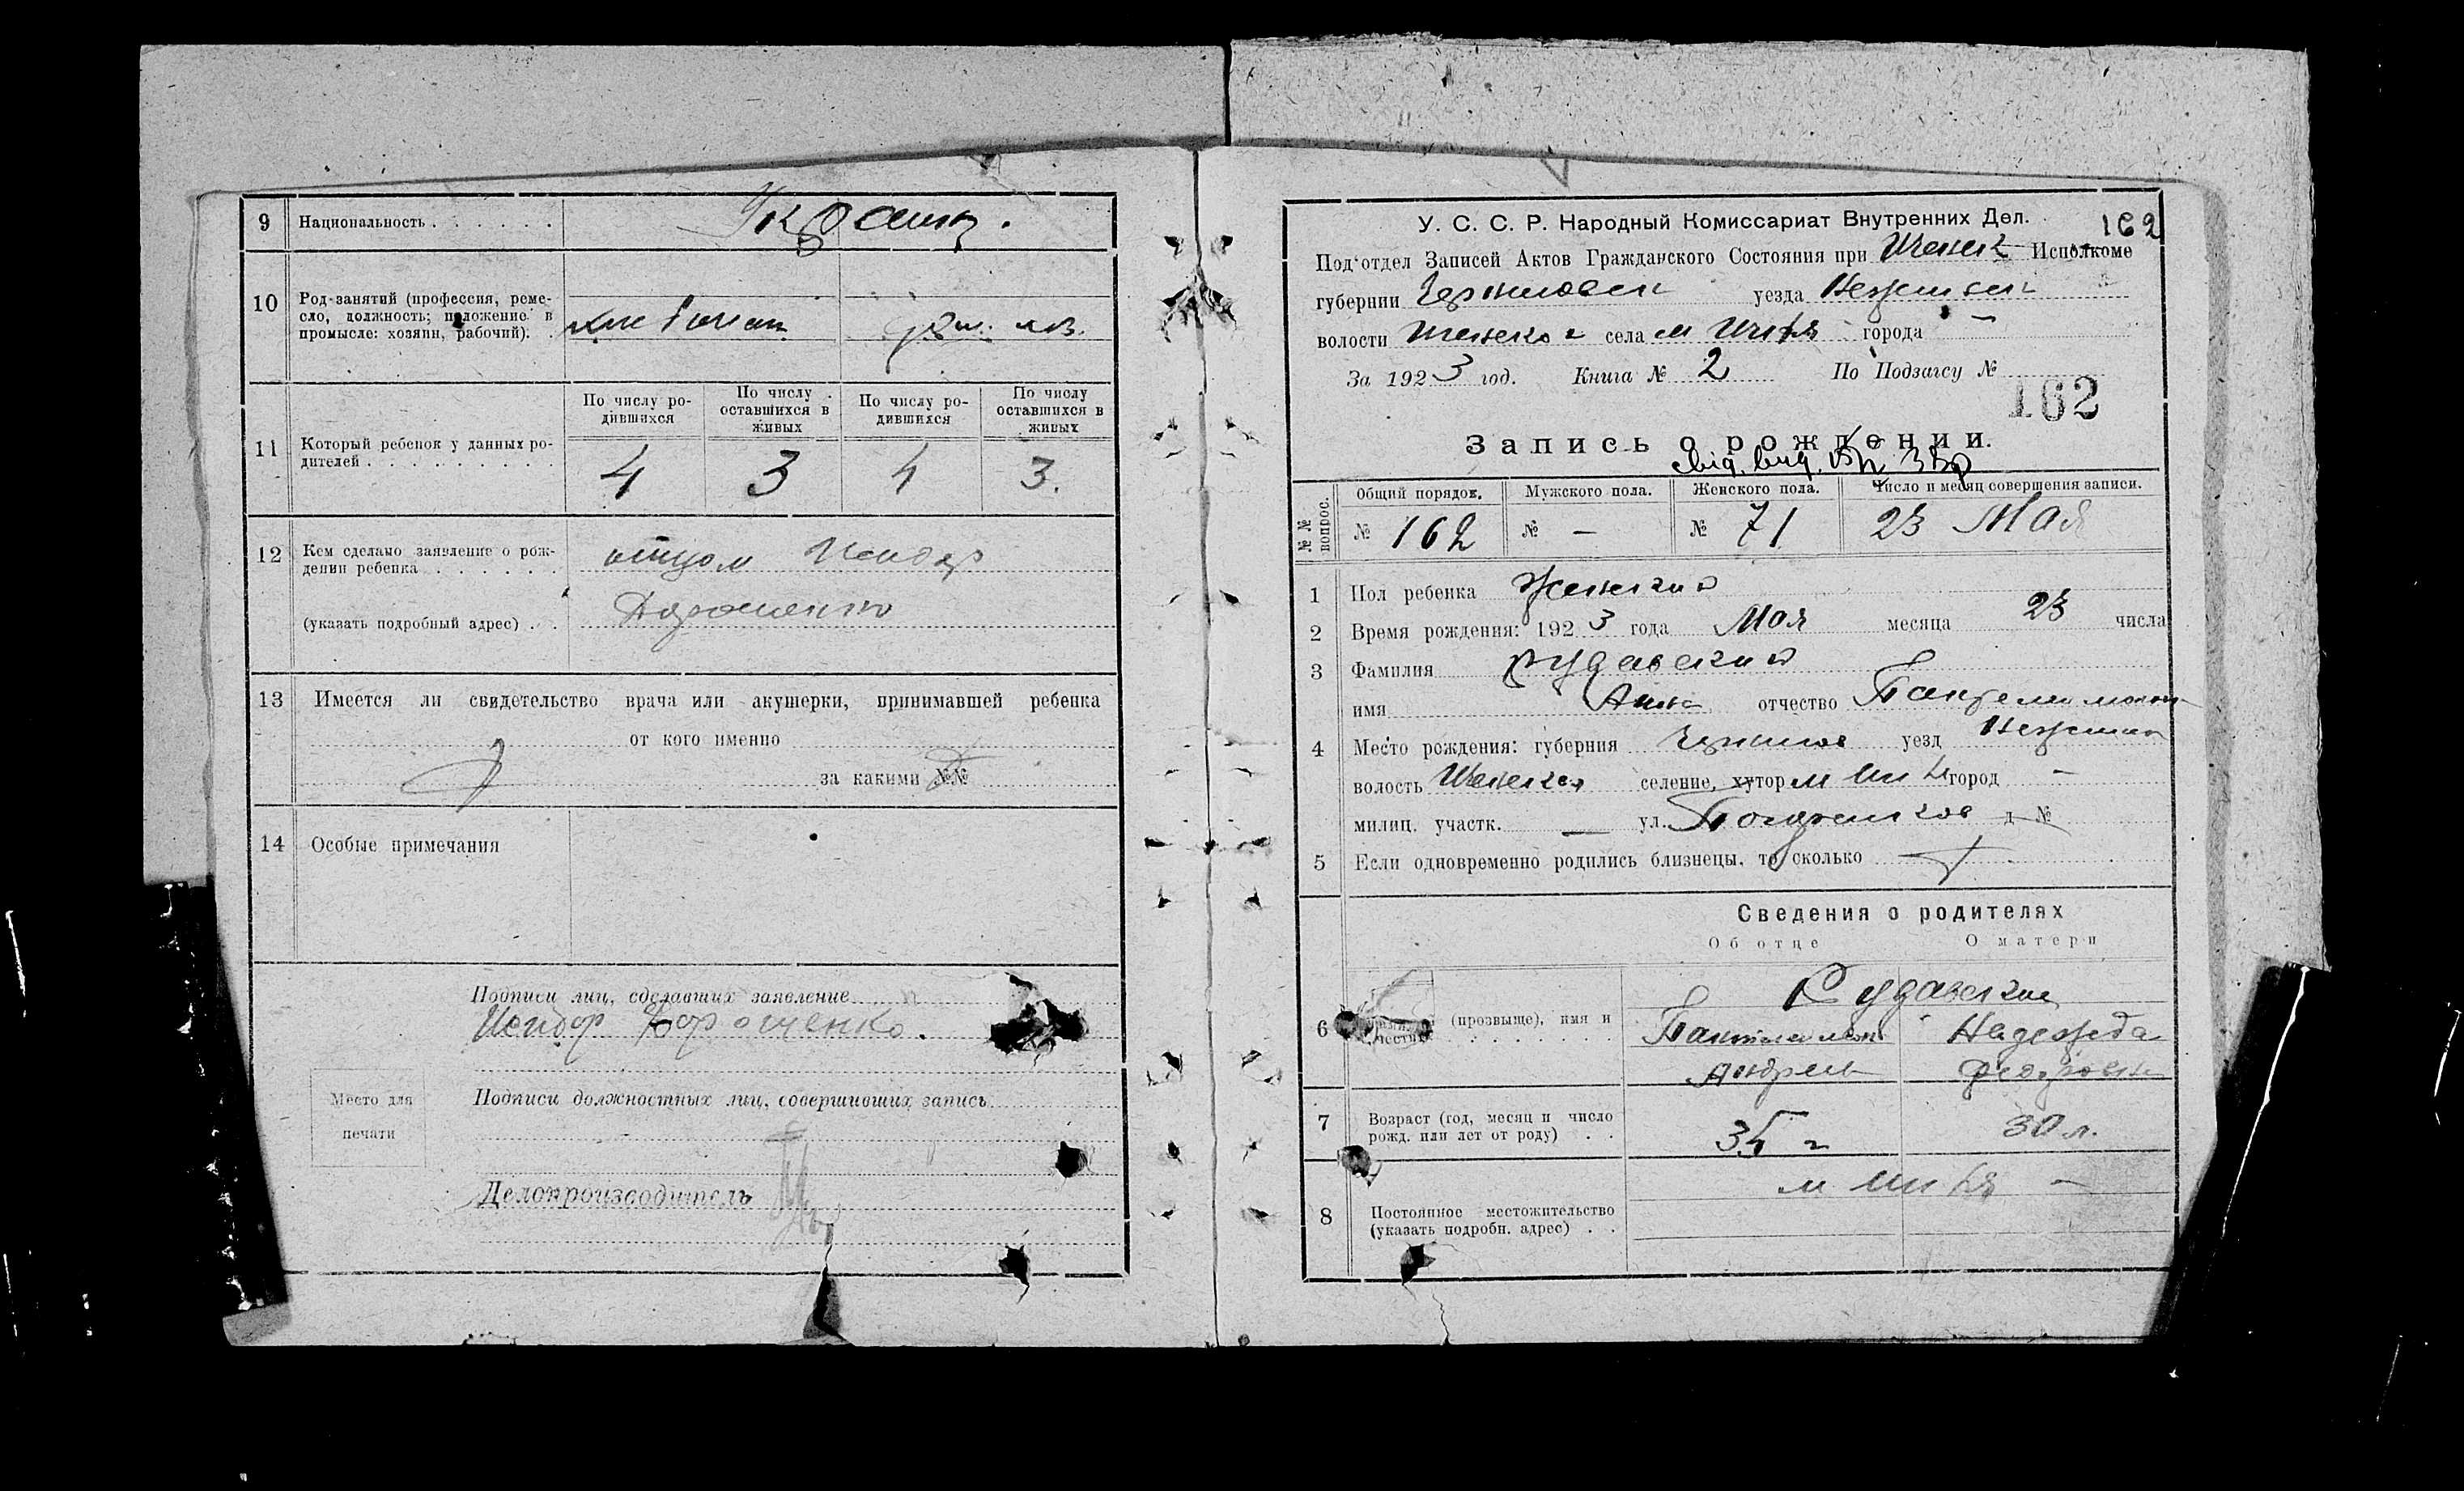 9 Национальность . . . . . . Украин.
10 Род-занятий (профессия, реме-
сло, должность; положение в
промысле: хозяин, рабочий). .
11 Который ребенок у данных ро-
дителей . . . . . . . . . .
По числу ро-
дившихся
По числу
оставшихся в
живых
По числу ро-
дившихся
По числу
оставшихся в
живых
4 3 4 3.
12 Кем сделано заявление о рож-
дении ребенка . . . . . . отцом Исидор
(указать подробный адрес) . . Дорошенко
13 Имеется ли свидетельство врача или акушерки, принимавшей ребенка
от кого именно
за какими №№
14 Особые примечания
Подписи лиц, сделавших заявление
Исидор Дорошенко.
Место для
печати
Подписи должностных лиц, совершивших запись
Делопроизводитель
У. С. С. Р. Народный Комиссариат Внутренних Дел.
162
Под'отдел Записей Актов Гражданского Состояния при Исполкоме
губернии Черниговск уезда Нежинск
волости села м города —
За 1923 год. Книга № 2 По Подзагсу №
162
Запись о рождении.
№№ вопрос.
Общий порядок. Мужского пола. Женского пола. Число и месяц совершения записи.
№ 162 № — № 71 23 Мая
1 Пол ребенка Женский
2 Время рождения: 1923 года Мая месяца 23 числа
3 Фамилия Рудавский
имя Анна отчество Пантелеимон
4 Место рождения: губерния Чернигов уезд Нежин
волость селение, хутор м город —
милиц. участк. — ул. д №
5 Если одновременно родились близнецы, то сколько
Сведения о родителях
Об отце О матери
6 (прозвище), имя и
Рудавские
Пантелеимон Надежда
Андрей Федоровна
7 Возраст (год, месяц и число
рожд. или лет от роду) . . 35 г 30 л.
8 Постоянное местожительство
(указать подробн. адрес) . .